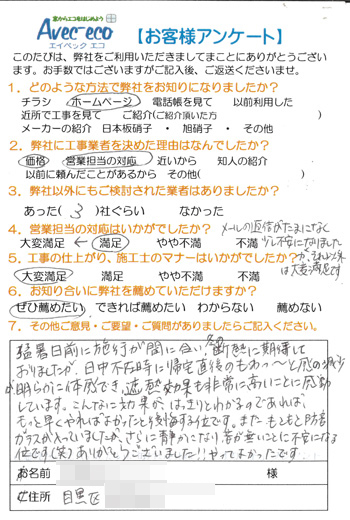 窓からエコをはじめよう
Avec-eco
エイベック エコ
【お客様アンケート】
このたびは、弊社をご利用いただきましてまことにありがとうござい
ます。お手数ではございますがご記入後、ご返送くださいませ。
1. どのような方法で弊社をお知りになりましたか?
チラシ ホームページ 電話帳を見て 以前利用した
近所で工事を見て ご紹介(ご紹介頂いた方 )
メーカーの紹介 日本板硝子 ・ 旭硝子 ・ その他
2. 弊社に工事業者を決めた理由はなんでしたか?
価格 営業担当の対応 近いから 知人の紹介
以前に頼んだことがあるから その他( )
3. 弊社以外にもご検討された業者はありましたか?
あった( 3 )社ぐらい なかった
4. 営業担当の対応はいかがでしたか?
メールの返信がたまになく
大変満足 ← 満足 やや不満 不満
少し不安になりました
5. 工事の仕上がり、施工士のマナーはいかがでしたか?
が、それ以外
大変満足 満足 やや不満 不満
は大変満足です
6. お知り合いに弊社を薦めていただけますか?
ぜひ薦めたい できれば薦めたい わからない 薦めない
7. その他ご意見・ご要望・ご質問がありましたらご記入ください。
猛暑日前に施行が間に合い、その断熱に期待して
おりましたが、日中不在時に帰宅直後のもわ〜〜と感の減少
が明らかに体感でき、遮熱効果も非常に高いことに感動
しています。こんなに効果が、はっきりとわかるのであれば、
もっと早くやればよかったと後悔する位です。また、もともと防音
ガラスが入っていましたが、さらに静かになり、音が無いことに不安になる
位です(笑)ありがとうございました!!やってよかったです
お名前 様
ご住所 目黒区